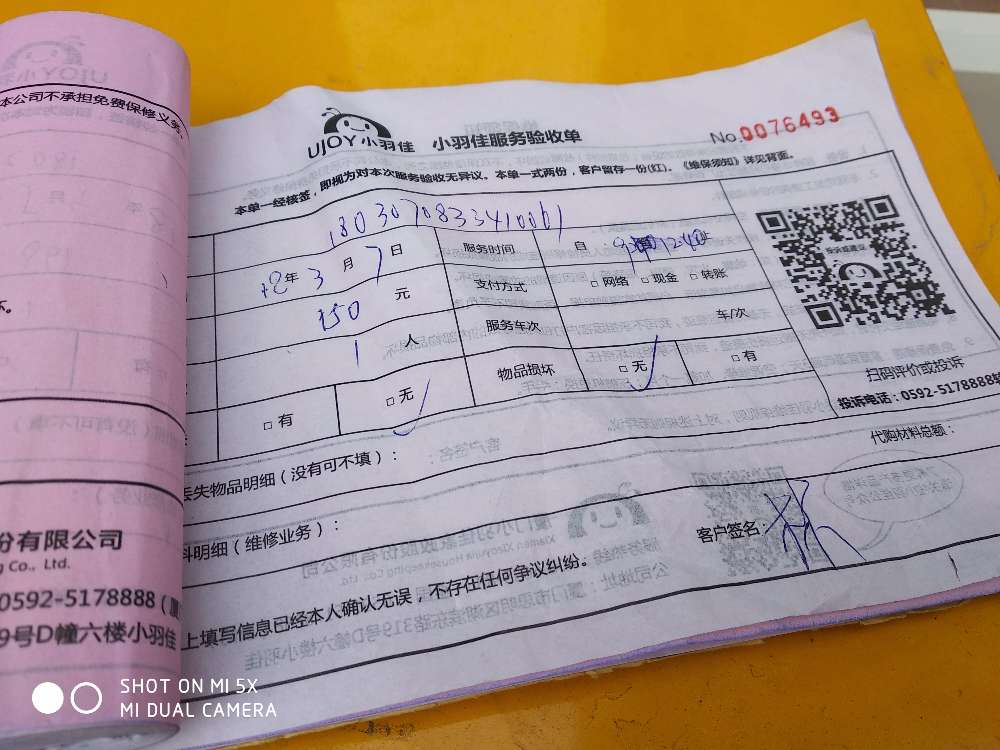 本公司不承担免费保修义务
UJOY小羽佳 小羽佳服务验收单
No.0076493
本单一经核签，即视为对本次服务验收无异议。本单一式两份，客户留存一份(红)。《维保须知》详见背面。
1803070833410061
18年3月7日 服务时间 自
150元 支付方式 □网络 □现金 □转账
1人 服务车次 车/次
□有 □无 物品损坏 □无 □有
投诉或建议
扫码评价或投诉
投诉电话：0592-5178888转
丢失物品明细（没有可不填）：
代购材料总额：
料明细（维修业务）：
客户签名：
上填写信息已经本人确认无误，不存在任何争议纠纷。
份有限公司
g Co., Ltd.
0592-5178888
19号D幢六楼小羽佳
SHOT ON MI 5X
MI DUAL CAMERA